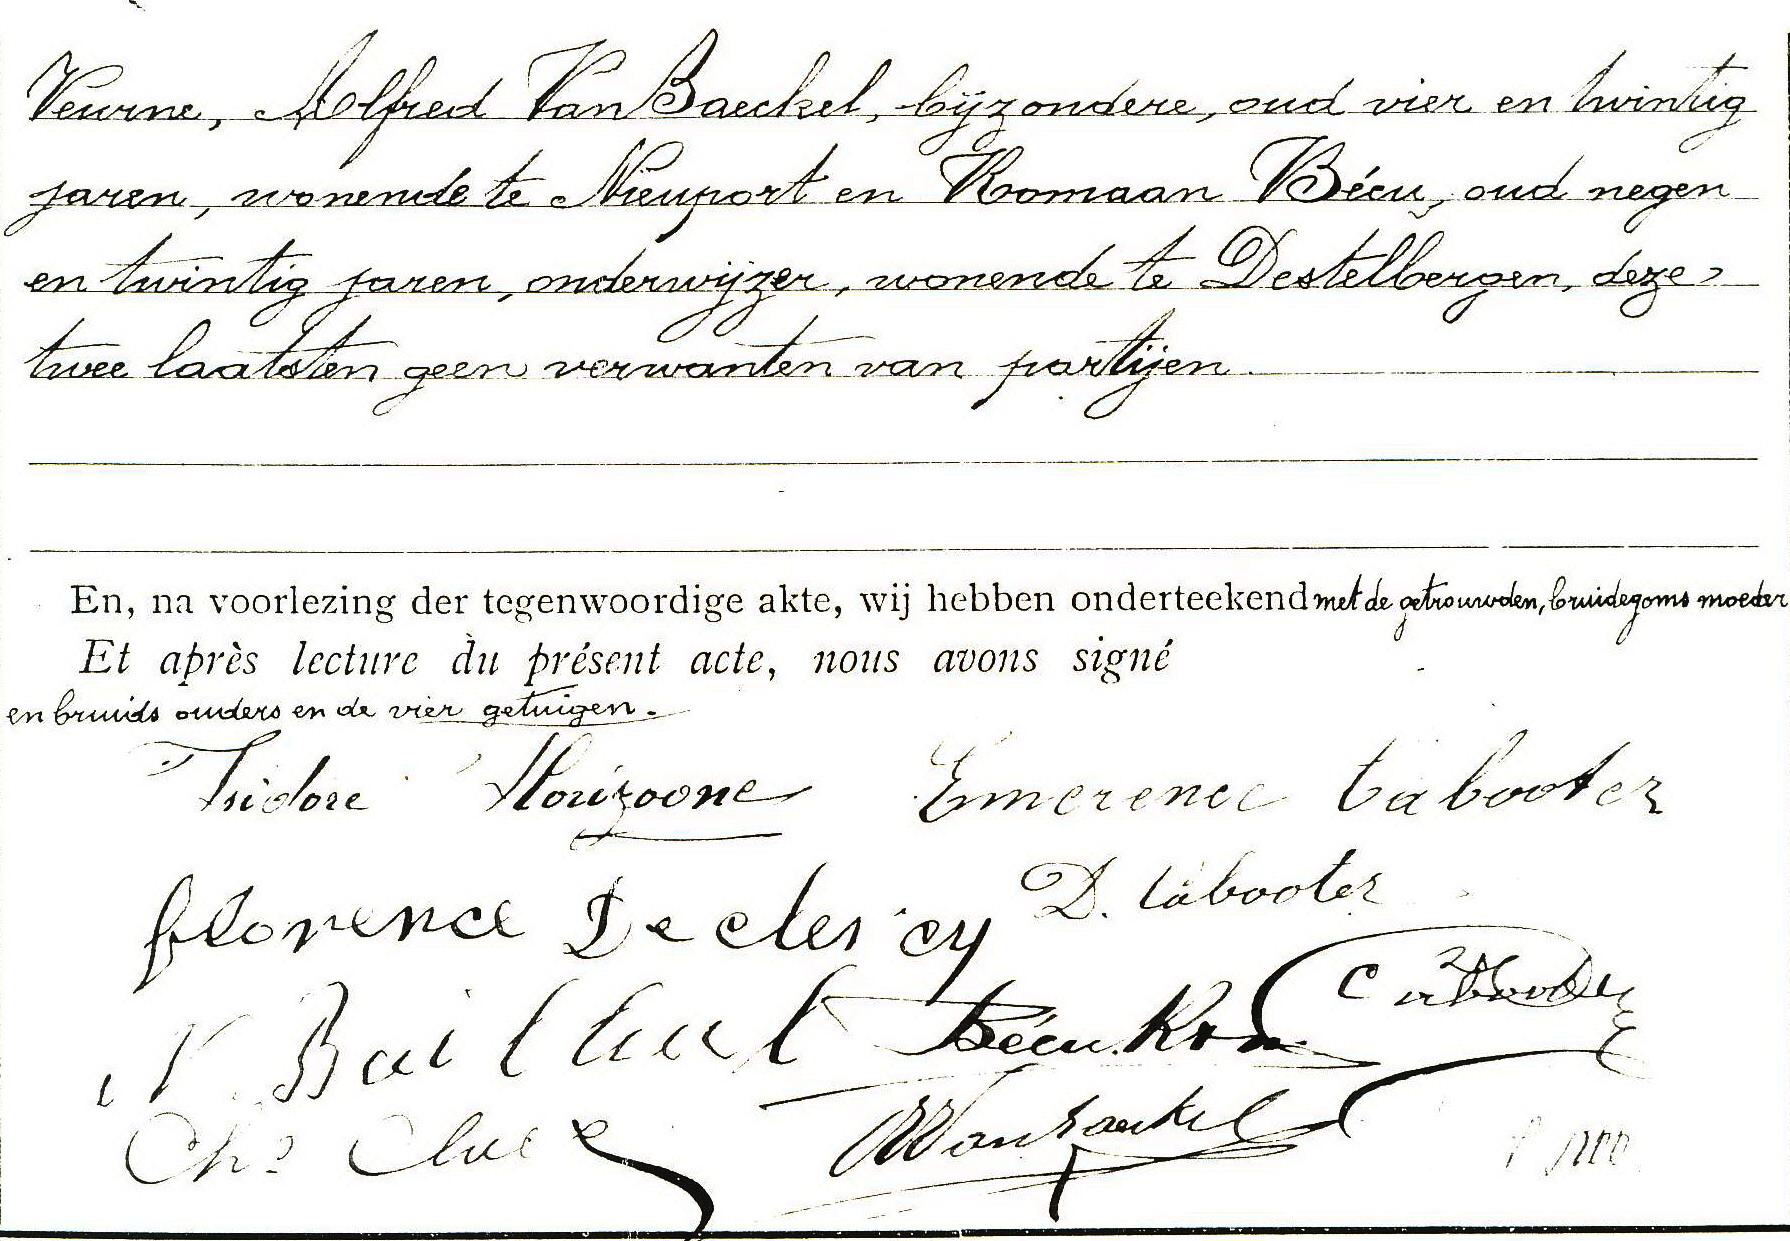 Veurne, Alfred Van Baeckel, bijzondere, oud vier en twintig
jaren, wonende te Nieuport en Romaan Bécu, oud negen
en twintig jaren, onderwijzer, wonende te Destelbergen, deze
twee laatsten geen verwanten van partijen.
En, na voorlezing der tegenwoordige akte, wij hebben onderteekend met de getrouwden, bruidegoms moeder
Et après lecture du présent acte, nous avons signé
en bruids ouders en de vier getuigen.
Isidore Florizoone Emerence Tabooter
Florence Declercq D. Tabooter
Bécu. Rom
VanBaeckel